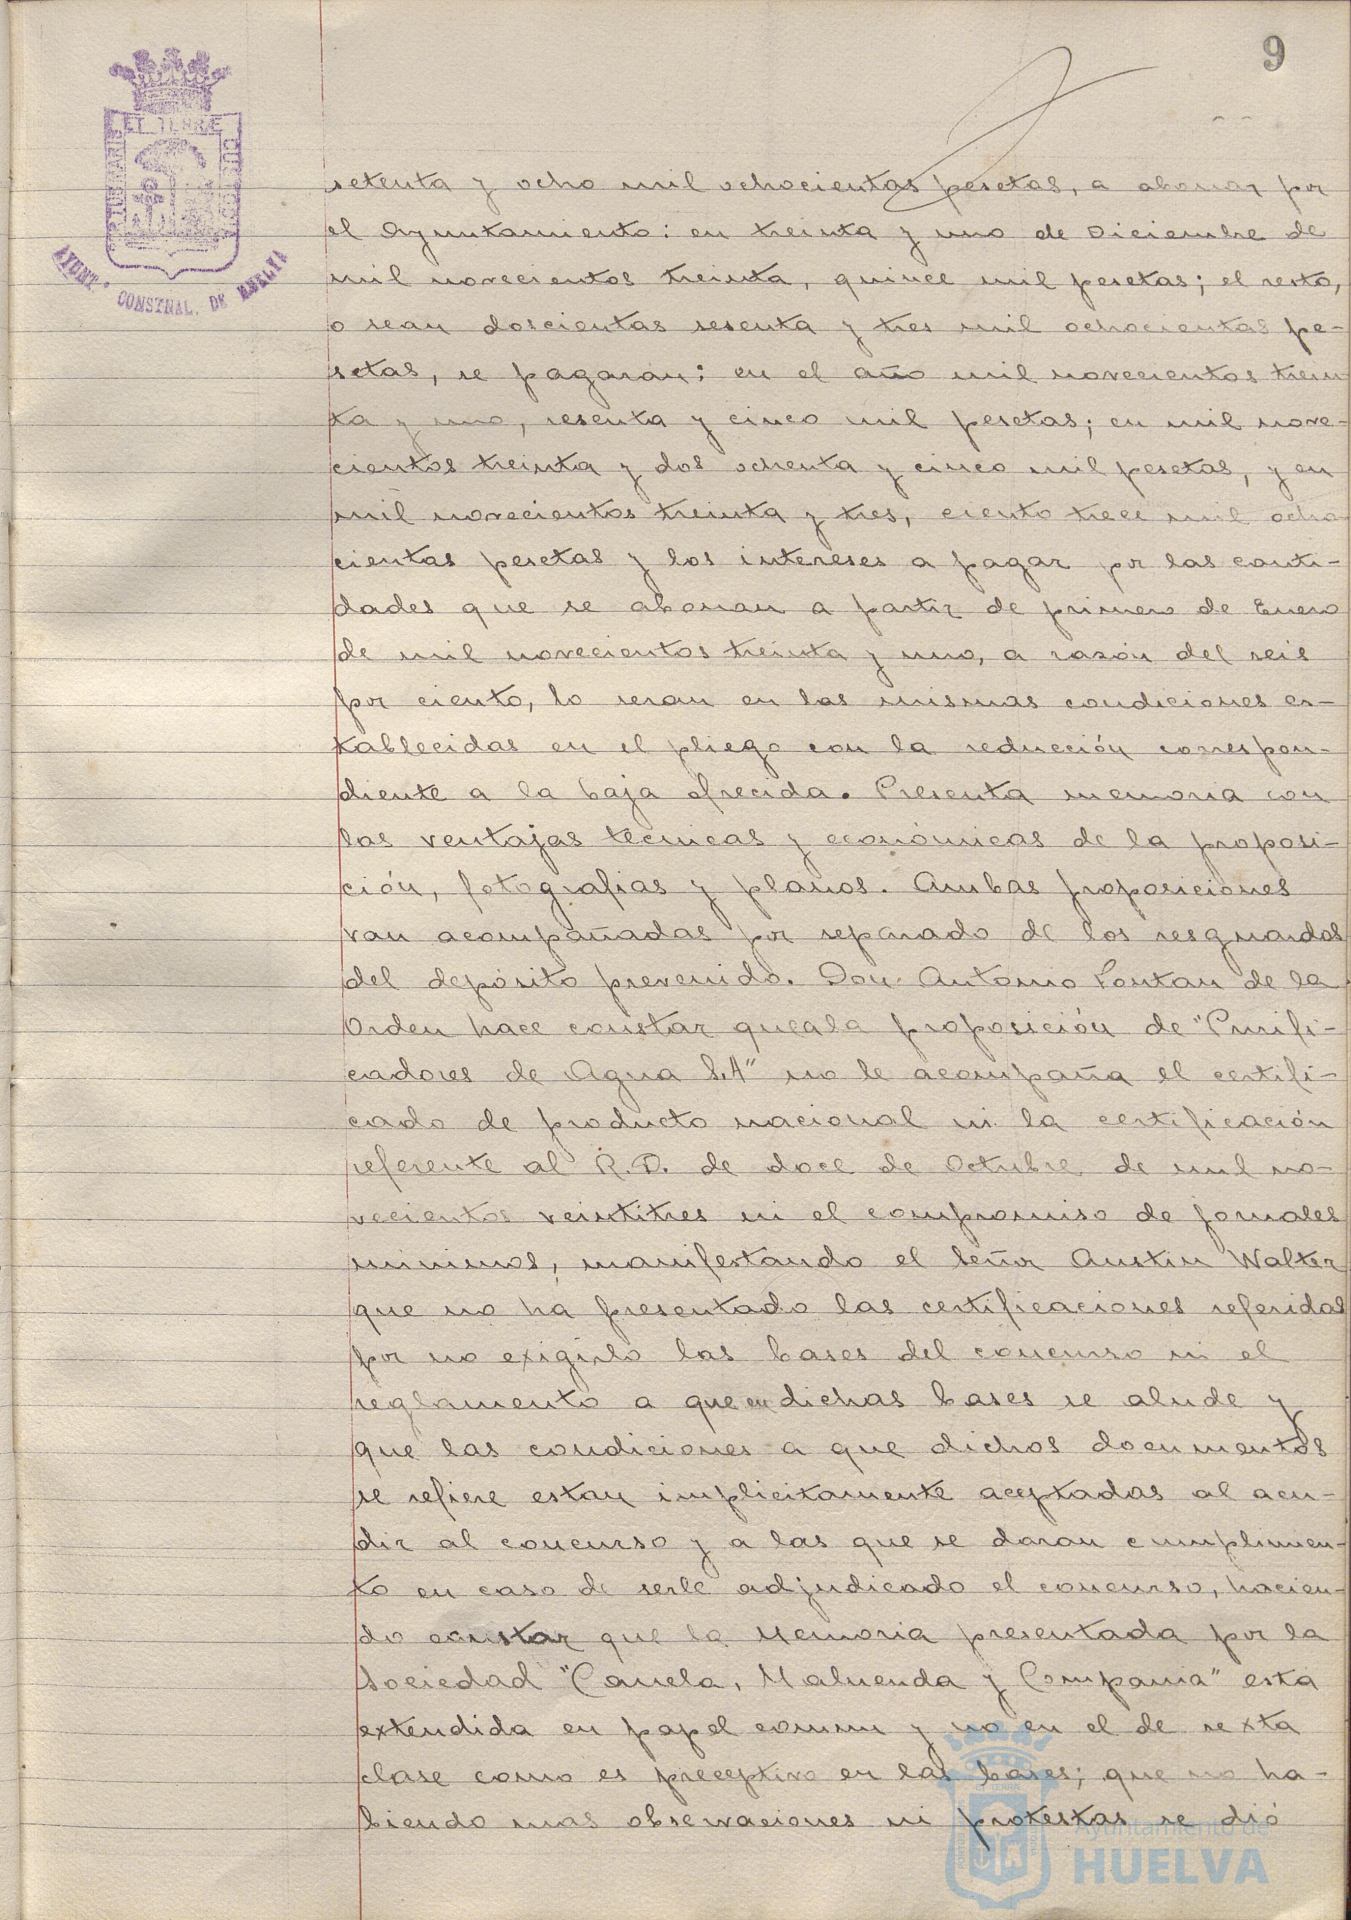 9
PORTUS MARIS ET TERRÆ CUSTODIA
AYUNT.º CONSTNAL. DE HUELVA
setenta y ocho mil ochocientas pesetas, a abonar por
el Ayuntamiento: en treinta y uno de Diciembre de
mil novecientos treinta, quince mil pesetas; el resto,
o sean doscientas sesenta y tres mil ochocientas pe-
setas, se pagaran: en el año mil novecientos trein
ta y uno, sesenta y cinco mil pesetas; en mil nove-
cientos treinta y dos ochenta y cinco mil pesetas, y en
mil novecientos treinta y tres, ciento trece mil ocho
cientas pesetas y los intereses a pagar por las canti-
dades que se abonan a partir de primero de Enero
de mil novecientos treinta y uno, a razón del seis
por ciento, lo seran en las mismas condiciones es-
tablecidas en el pliego con la reducción correspon-
diente a la baja ofrecida. Presenta memoria con
las ventajas técnicas y económicas de la proposi-
ción, fotografias y planos. Ambas proposiciones
van acompañadas por separado de los resguardos
del depósito prevenido. Don Antonio Pontan de la
Orden hace constar que a la proposición de "Purifi-
cadores de Agua S.A" no le acompaña el certifi-
cado de producto nacional ni la certificación
referente al R.D. de doce de Octubre de mil no-
vecientos veintitres ni el compromiso de jornales
minimos, manifestando el Señor Austin Walter
que no ha presentado las certificaciones referidas
por no exigirlo las bases del concurso ni el
reglamento a que en dichas bases se alude y
que las condiciones a que dichos documentos
se refiere estan implicitamente aceptadas al acu-
dir al concurso y a las que se daran cumplimien-
to en caso de serle adjudicado el concurso, hacien-
do constar que la Memoria presentada por la
Sociedad "Canela, Maluenda y Compania" esta
extendida en papel comun y no en el de sexta
clase como es preceptivo en las bases; que no ha-
biendo mas observaciones ni protestas se dió
Ayuntamiento de
HUELVA